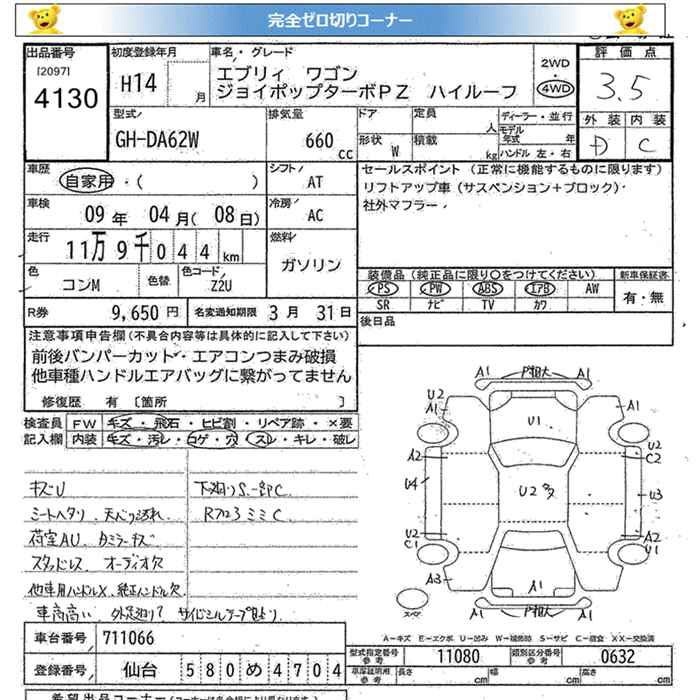 完全ゼロ切りコーナー
出品番号 初度登録年月 車名・グレード 評価点
[2097]
4130
H14 月
エブリィ ワゴン
ジョイポップターボPZ ハイルーフ
2WD
4WD
3.5
型式
GH-DA62W
排気量
660 cc
ドア 定員 人
形状 W 積載 kg
ディーラー・並行
モデル年式 年
ハンドル 左・右
外装 内装
D C
車歴
自家用・( )
シフト
AT
セールスポイント (正常に機能するものに限ります)
リフトアップ車(サスペンション+ブロック)・
社外マフラー・
車検
09年 04月(08日)
冷房
AC
走行
11万9千044km
燃料
ガソリン
色
コンM
色替
色コード
Z2U
装備品(純正品に限り○をつけてください) 新車保証書
PS PW ABS エアB AW
SR ナビ TV カワ
有・無
R券 9,650円 名変通知期限 3月 31日
後日品
注意事項申告欄(不具合内容等は具体的に記入して下さい)
前後バンパーカット・エアコンつまみ破損
他車種ハンドルエアバッグに繋がってません
修復歴 有 〔箇所 〕
検査員記入欄
FW キズ・飛石・ヒビ割・リペア跡・×要
内装 キズ・汚レ・コゲ・穴・スレ・キレ・破レ
キズU 下廻りS.一部C
シートヘタリ、天バリ汚れ R フロミミC
荷室AU、カミラーキズ
スタッドレス オーディオ欠
他車用ハンドルX、純正ハンドル欠
車高高い 外足廻り? サイドシルテープ貼り
A1 内相大 A1
U2 A1 U1 A1
A2 U2 C2
U4 U2多 U3
U2 C1 A2 U1
A3 A1 A2
スペア
A1 内相大 A1
A-キズ E-エクボ U-凹み W-補修跡 S-サビ C-腐食 XX-交換済
車台番号 711066
型式指定番号 参考 11080 類別区分番号 参考 0632
登録番号 仙台 580 め 4704
車庫証明用 参考 長さ cm 幅 cm 高さ cm
希望出品コーナー